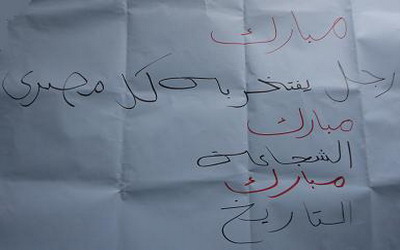 مبارك
رجل يفتخر به كل مصرى
مبارك
الشجاعة
مبارك
التاريخ